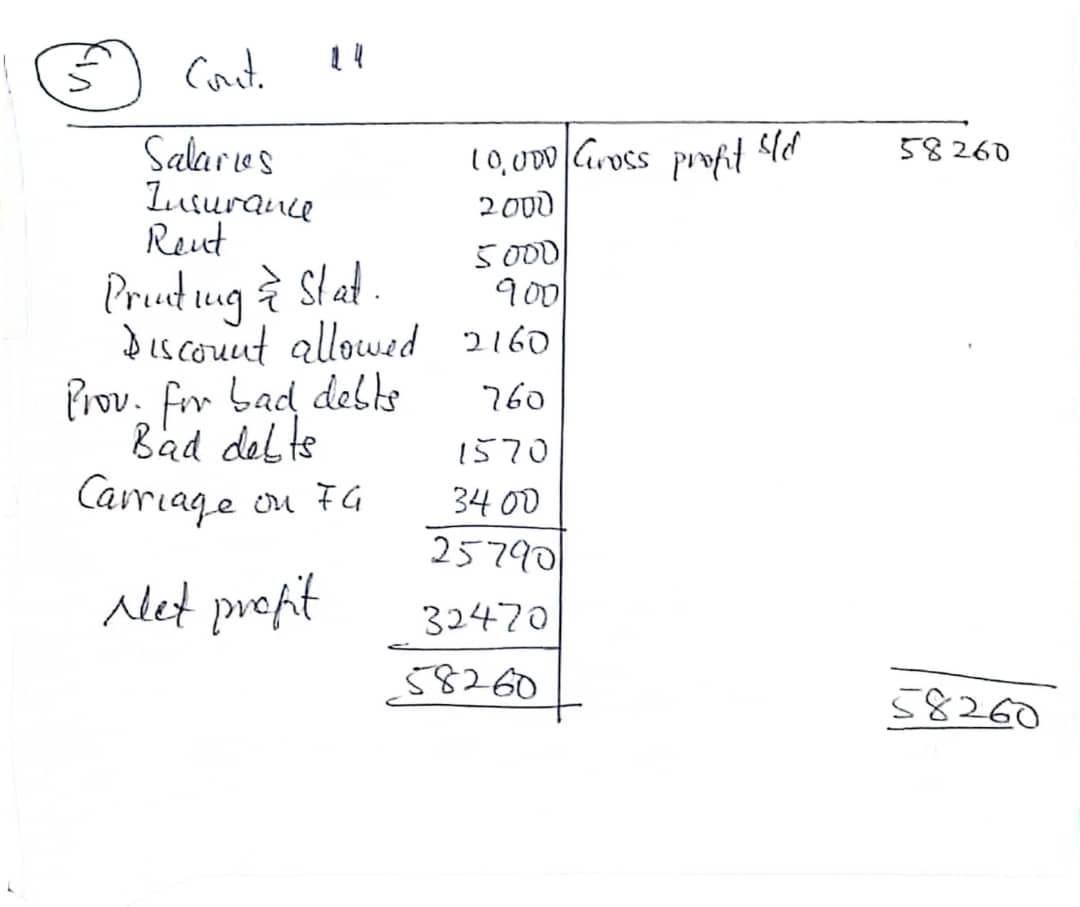 5 Cont. 14
Salaries 10,000 Gross profit b/d 58260
Insurance 2000
Rent 5000
Printing & Stat. 900
Discount allowed 2160
Prov. for bad debts 760
Bad debts 1570
Carriage on FG 3400
25790
Net profit 32470
58260 58260